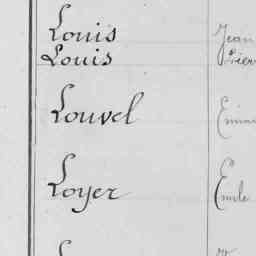 Louis Jean
Louis Pierre
Louvel
Loyer Emile